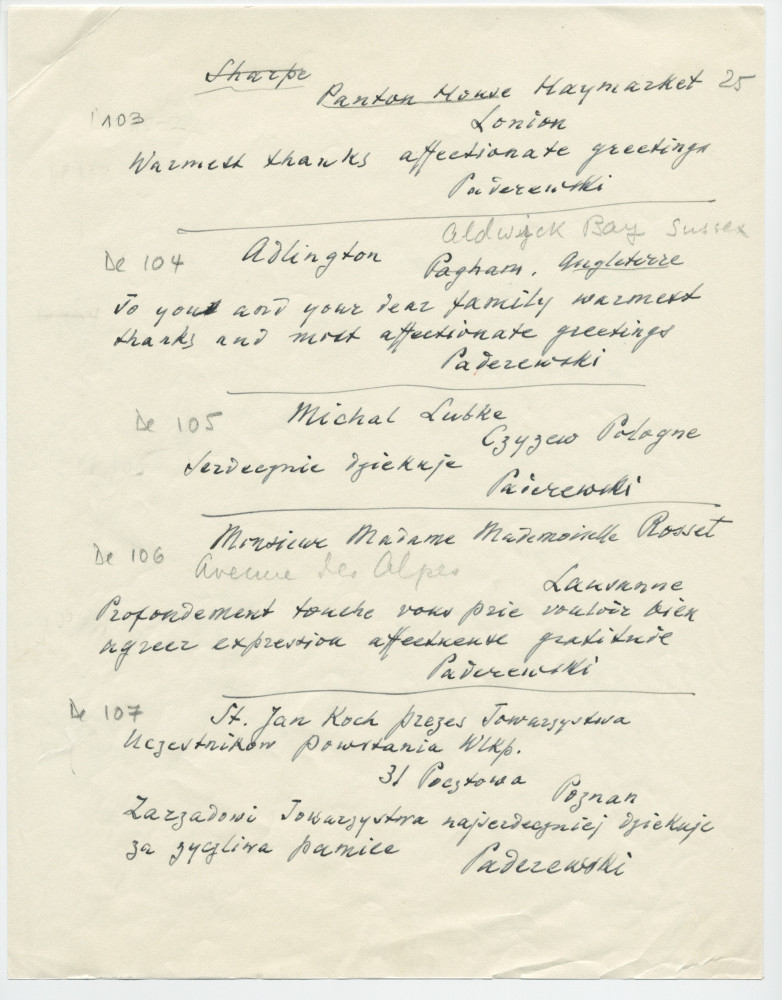 Sharpe
Panton House Haymarket 25
103
London
Warmest thanks affectionate greetings
Paderewski
Aldwyck Bay Sussex
De 104 Adlington
Pagham. Angleterre
To you and your dear family warmest
thanks and most affectionate greetings
Paderewski
De 105 Michal Lubke
Czyzew Pologne
Serdecznie dziekuje
Paderewski
Monsieur Madame Mademoiselle Rosset
De 106
Avenue des Alpes
Lausanne
Profondement touche vous prie vouloir bien
agreer expression affectueuse gratitude
Paderewski
De 107 St. Jan Koch prezes Towarzystwa
Uczestnikow Powstania Wlkp.
31 Pocztowa Poznan
Zarzadowi Towarzystwa najserdeczniej dziekuje
za zyczliwa pamiec
Paderewski